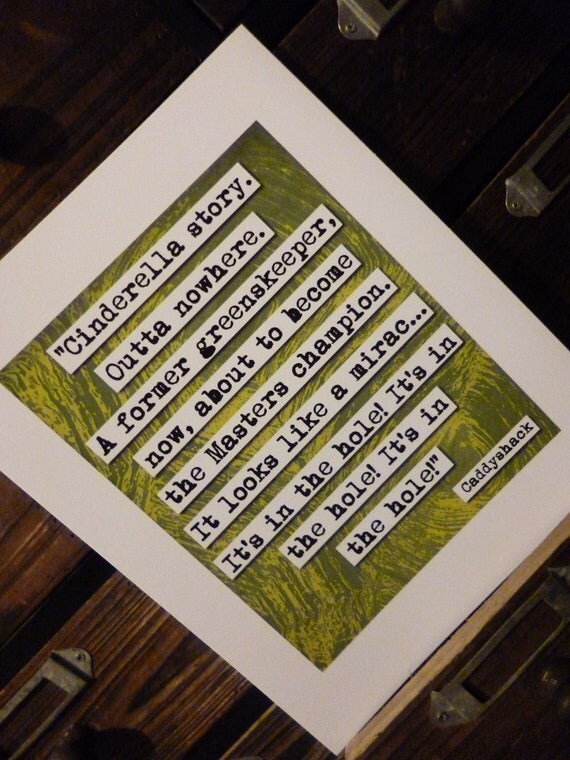 "Cinderella story.
Outta nowhere.
A former greenskeeper,
now, about to become
the Masters champion.
It looks like a mirac...
It's in the hole! It's in
the hole! It's in
the hole!"
Caddyshack